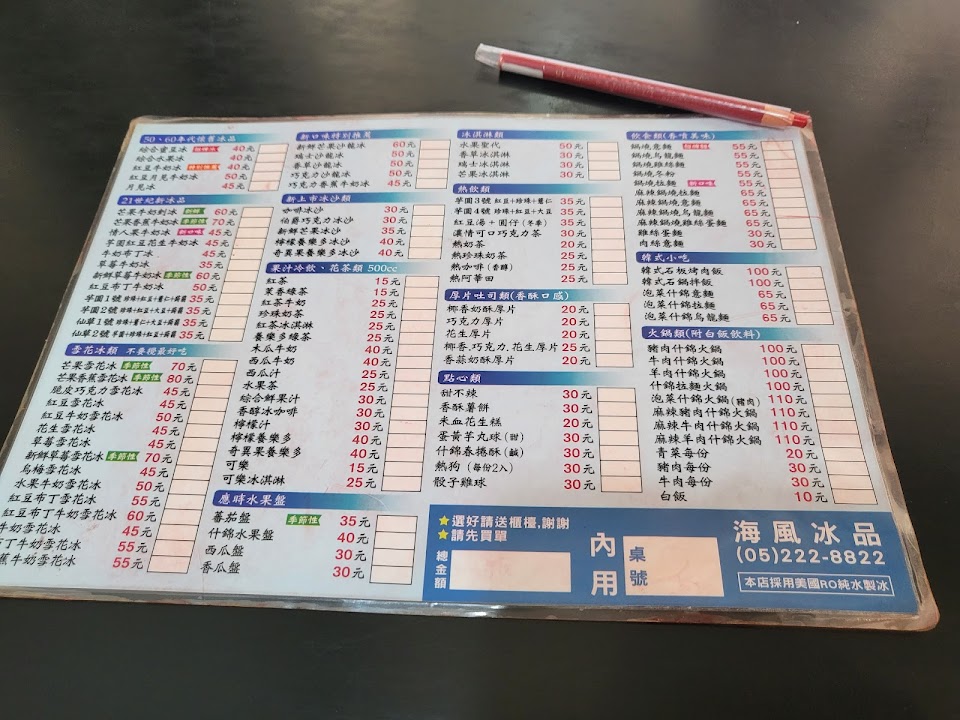 50、60年代懷舊冰品
綜合蜜豆冰 招牌冰 40元
綜合水果冰 40元
紅豆牛奶冰 特別推薦 40元
紅豆月見牛奶冰 50元
月見冰 45元
21世紀新冰品
芒果牛奶刨冰 新鮮 60元
芒果香蕉牛奶冰 季節性 70元
情人果牛奶冰 新口味 45元
芋圓紅豆花生牛奶冰 45元
牛奶布丁冰 45元
草莓牛奶冰 35元
新鮮草莓牛奶冰 季節性 60元
紅豆布丁牛奶冰 50元
芋圓1號 珍珠+紅豆+薏仁+蒟蒻 35元
芋圓2號 珍珠+薏仁+大豆+蒟蒻 35元
仙草1號 珍珠+紅豆+薏仁+蒟蒻 35元
仙草2號 芋圓+珍珠+紅豆+大豆 35元
雪花冰類 不要攪最好吃
芒果雪花冰 季節性 70元
芒果香蕉雪花冰 季節性 80元
脆皮巧克力雪花冰 45元
紅豆雪花冰 45元
紅豆牛奶雪花冰 50元
花生雪花冰 45元
草莓雪花冰 45元
新鮮草莓雪花冰 季節性 70元
烏梅雪花冰 45元
水果牛奶雪花冰 50元
紅豆布丁雪花冰 55元
紅豆布丁牛奶雪花冰 60元
芋雪花冰 45元
布丁牛奶雪花冰 55元
蕉牛奶雪花冰 55元
新口味特別推薦
新鮮芒果沙龍冰 60元
瑞士沙龍冰 50元
香草沙龍冰 50元
巧克力沙龍冰 50元
巧克力香蕉牛奶冰 45元
新上市冰沙類
咖啡冰沙 30元
伯爵巧克力冰沙 30元
新鮮芒果冰沙 35元
檸檬養樂多冰沙 40元
奇異果養樂多冰沙 40元
果汁冷飲、花茶類 500cc
紅茶 15元
茉香綠茶 15元
紅茶牛奶 25元
珍珠奶茶 25元
紅茶冰淇淋 25元
養樂多綠茶 25元
木瓜牛奶 40元
西瓜牛奶 40元
西瓜汁 25元
水果茶 25元
綜合鮮果汁 30元
香醇冰咖啡 30元
檸檬汁 30元
檸檬養樂多 40元
奇異果養樂多 40元
可樂 15元
可樂冰淇淋 25元
應時水果盤
蕃茄盤 季節性 35元
什錦水果盤 40元
西瓜盤 30元
香瓜盤 30元
冰淇淋類
水果聖代 50元
香草冰淇淋 30元
瑞士冰淇淋 30元
芒果冰淇淋 30元
熱飲類
芋圓3號 紅豆+珍珠+薏仁 35元
芋圓4號 珍珠+紅豆+大豆 35元
紅豆湯+圓仔(冬季) 35元
濃情可口巧克力茶 30元
熱奶茶 20元
熱珍珠奶茶 25元
熱咖啡(香醇) 25元
熱阿華田 25元
厚片吐司類(香酥口感)
椰香奶酥厚片 20元
巧克力厚片 20元
花生厚片 20元
椰香.巧克力.花生厚片 25元
香蒜奶酥厚片 20元
點心類
甜不辣 30元
香酥薯餅 30元
米血花生糕 20元
蛋黃芋丸球(甜) 30元
什錦春捲酥(鹹) 30元
熱狗(每份2入) 30元
骰子雞球 30元
飲食類(香噴美味)
鍋燒意麵 招牌麵 55元
鍋燒烏龍麵 55元
鍋燒雞絲麵 55元
鍋燒冬粉 55元
鍋燒拉麵 新口味 55元
麻辣鍋燒拉麵 65元
麻辣鍋燒意麵 65元
麻辣鍋燒烏龍麵 65元
麻辣鍋燒雞絲蛋麵 65元
雞絲蛋麵 30元
肉絲意麵 30元
韓式小吃
韓式石板烤肉飯 100元
韓式石鍋拌飯 100元
泡菜什錦意麵 65元
泡菜什錦拉麵 65元
泡菜什錦烏龍麵 65元
火鍋類(附白飯飲料)
豬肉什錦火鍋 100元
牛肉什錦火鍋 100元
羊肉什錦火鍋 100元
什錦拉麵火鍋 100元
泡菜什錦火鍋(豬肉) 110元
麻辣豬肉什錦火鍋 110元
麻辣牛肉什錦火鍋 110元
麻辣羊肉什錦火鍋 110元
青菜每份 20元
豬肉每份 30元
牛肉每份 30元
白飯 10元
★選好請送櫃檯,謝謝
★請先買單
總金額
內用
桌號
海風冰品
(05)222-8822
本店採用美國RO純水製冰